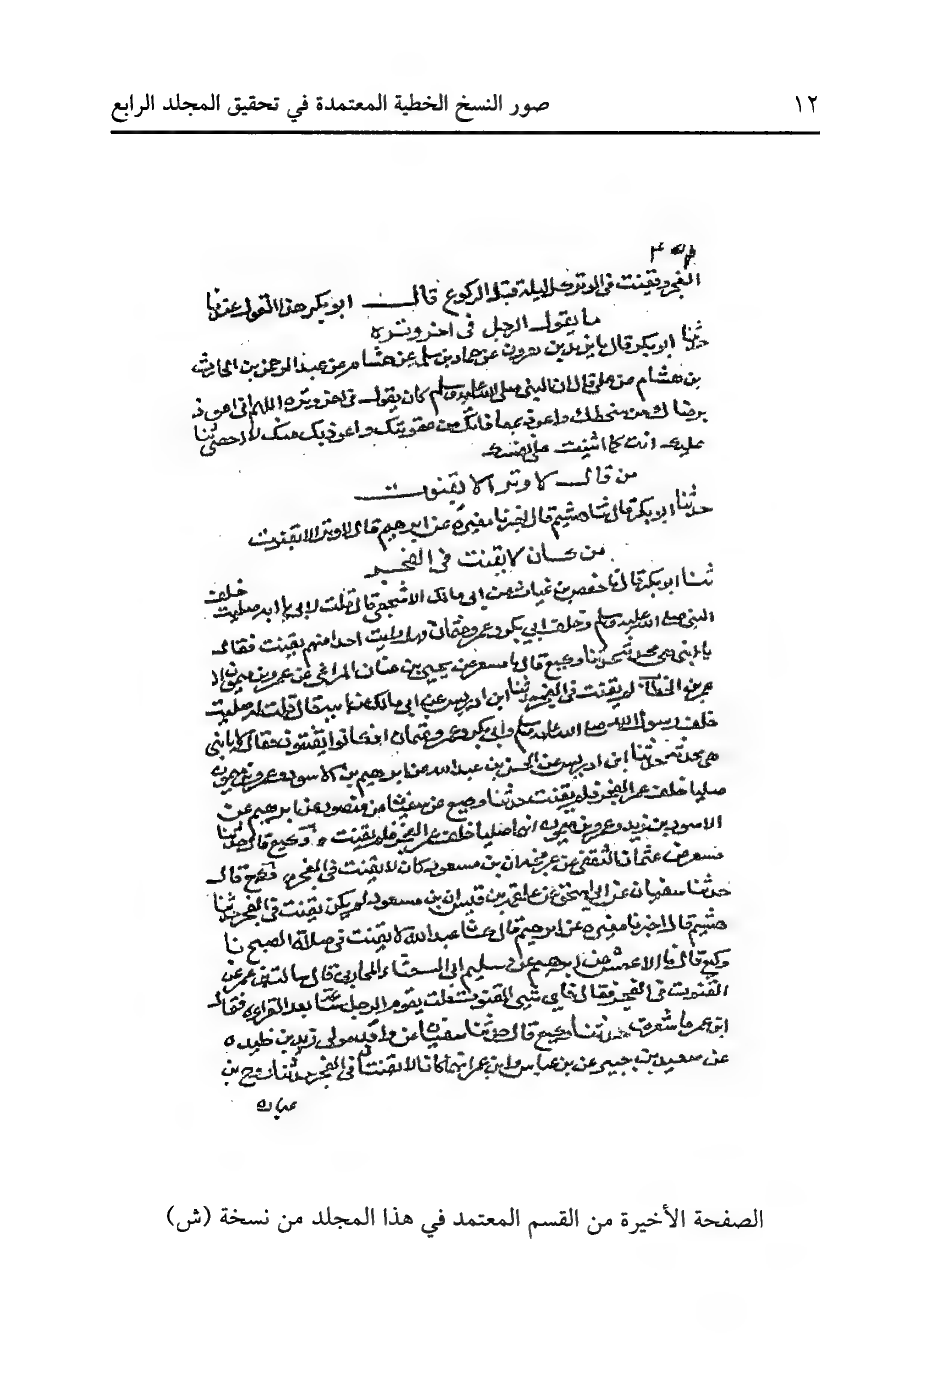 ١٢ صور النسخ الخطية المعتمدة في تحقيق المجلد الرابع
الفجر ويقنت في الوتر كل ليلة قبل الركوع قال ابو بكر هذا القول عندنا
ما يقول الرجل في اخر وتره
حدثنا ابو بكر قال نا يزيد بن هرون عن حماد بن سلمة عن هشام عن عبد الرحمن بن الحارث
بن هشام عن علي قال ان النبي صلى الله عليه وسلم كان يقول في اخر وتره اللهم اني اعوذ
برضاك من سخطك واعوذ بمعافاتك من عقوبتك واعوذ بك منك لا احصي ثنا
عليك انت كما اثنيت على نفسك
من قال لا وتر الا بقنوت
حدثنا ابو بكر قال نا هشيم قال اخبرنا مغيرة عن ابرهيم قال لا وتر الا بقنوت
من كان لا يقنت في الفجر
ثنا ابو بكر قال نا حفص بن غياث عن ابي مالك الاشجعي قال قلت لابي يا ابه صليت خلف
النبي صلى الله عليه وسلم وخلف ابي بكر وعمر وعثمان فهل رايت احدا منهم يقنت فقال
يا بني هي محدثة حدثنا وكيع قال نا مسعر عن يحيى بن غسان المرادي عن عمرو بن ميمون ان
عمر بن الخطاب لم يقنت في الفجر حدثنا ابن ادريس عن ابي مالك عن ابيه قال قلت له صليت
خلف رسول الله صلى الله عليه وسلم وابي بكر وعمر وعثمان افكانوا يقنتون فقال لا يا بني
هي محدثة حدثنا ابن ادريس عن الحسن بن عبيد الله عن ابرهيم ان الاسود وعمرو بن ميمون
صليا خلف عمر الفجر فلم يقنت حدثنا وكيع عن سفيان عن منصور عن ابرهيم عن
الاسود بن يزيد وعمرو بن ميمون انهما صليا خلف عمر الفجر فلم يقنت وكيع قال حدثنا
مسعر عن عثمان الثقفي عن عرفجة ان بن مسعود كان لا يقنت في الفجر وكيع قال
حدثنا سفيان عن ابي اسحق عن علقمة بن قيس ان بن مسعود لم يكن يقنت في الفجر حدثنا
هشيم قال اخبرنا مغيرة عن ابرهيم قال عبد الله لا يقنت في صلاة الصبح نا
وكيع قال نا الاعمش عن ابرهيم عن سليم ابي الشعثاء المحاربي قال سالت بن عمر عن
القنوت في الفجر فقال فاي شي القنوت قلت يقوم الرجل ساعة بعد القراءة فقال
ابن عمر ما شعرت حدثنا وكيع قال حدثنا سفيان عن واقد مولى زيد بن خليدة
عن سعيد بن جبير عن بن عباس وابن عمر انهما كانا لا يقنتان في الفجر حدثنا روح بن
عبادة
الصفحة الأخيرة من القسم المعتمد في هذا المجلد من نسخة (ش)